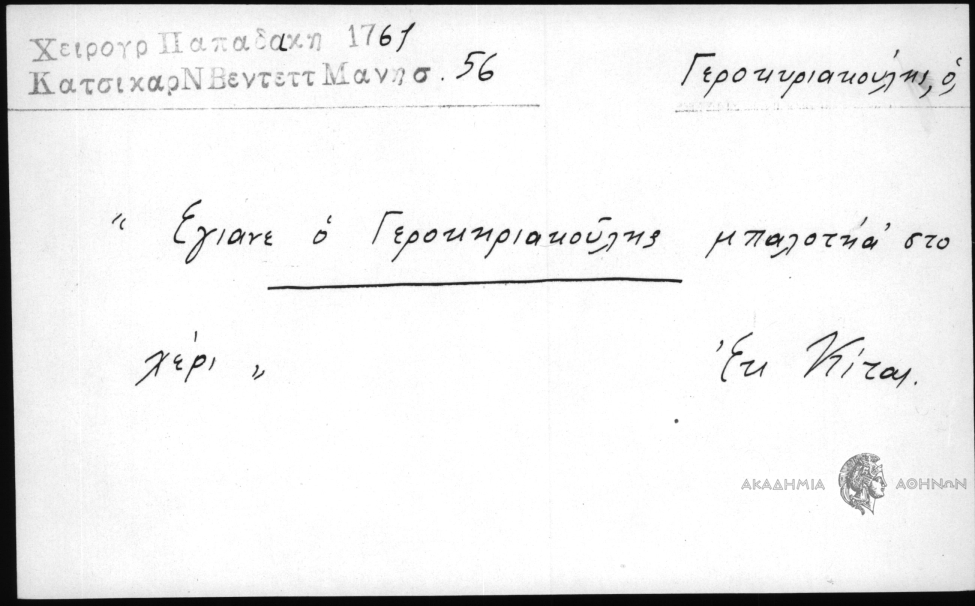 Χειρογρ Παπαδακη 1761
Κατσικαρ Ν Βεντεττ Μανησ. 56
Γεροκυριακούλης, ὁ
“ Ἐγιανε ὁ Γεροκηριακοῦλης μπαλοτηά στο
χέρι „
Ἐκ Κίτας.
ΑΚΑΔΗΜΙΑ ΑΘΗΝΩΝ